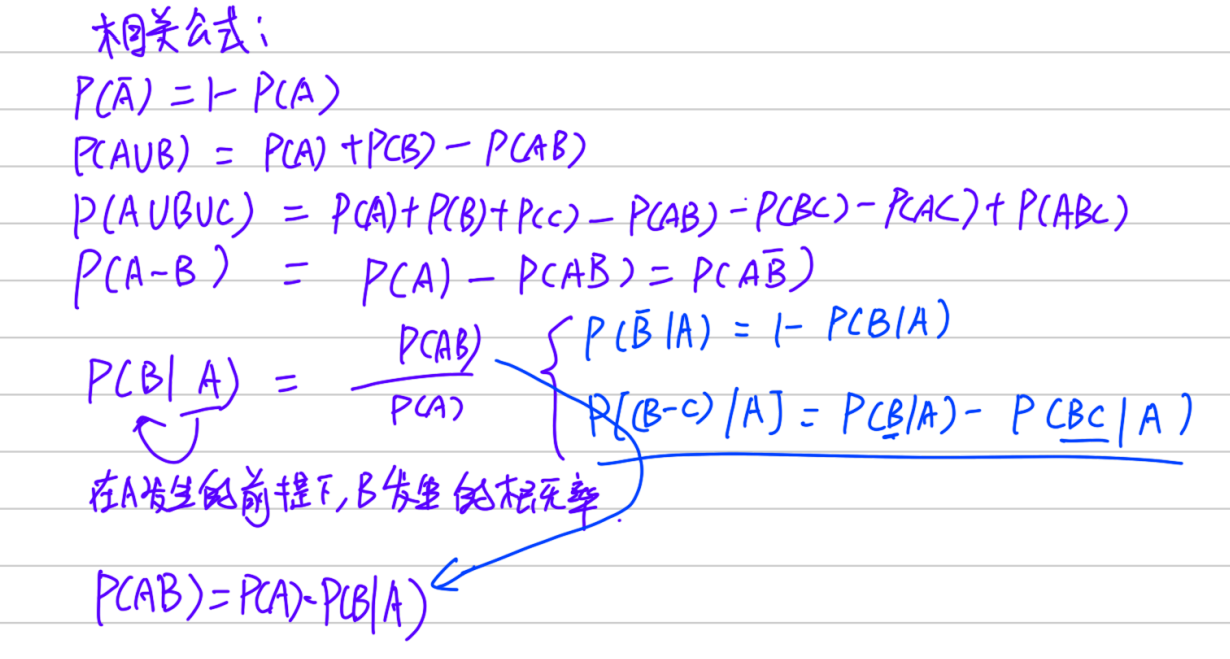 相关公式；
P(Ā) = 1- P(A)
P(A∪B) = P(A) +P(B) - P(AB)
P(A∪B∪C) = P(A)+P(B)+P(C)-P(AB)-P(BC)-P(AC)+P(ABC)
P(A-B) = P(A) - P(AB) = P(AB̄)
P(B|A) = P(AB)/P(A)
P(B̄|A) = 1- P(B|A)
P[(B-C)|A] = P(B|A) - P(BC|A)
在A发生的前提下,B发生的概率.
P(AB)=P(A)·P(B|A)